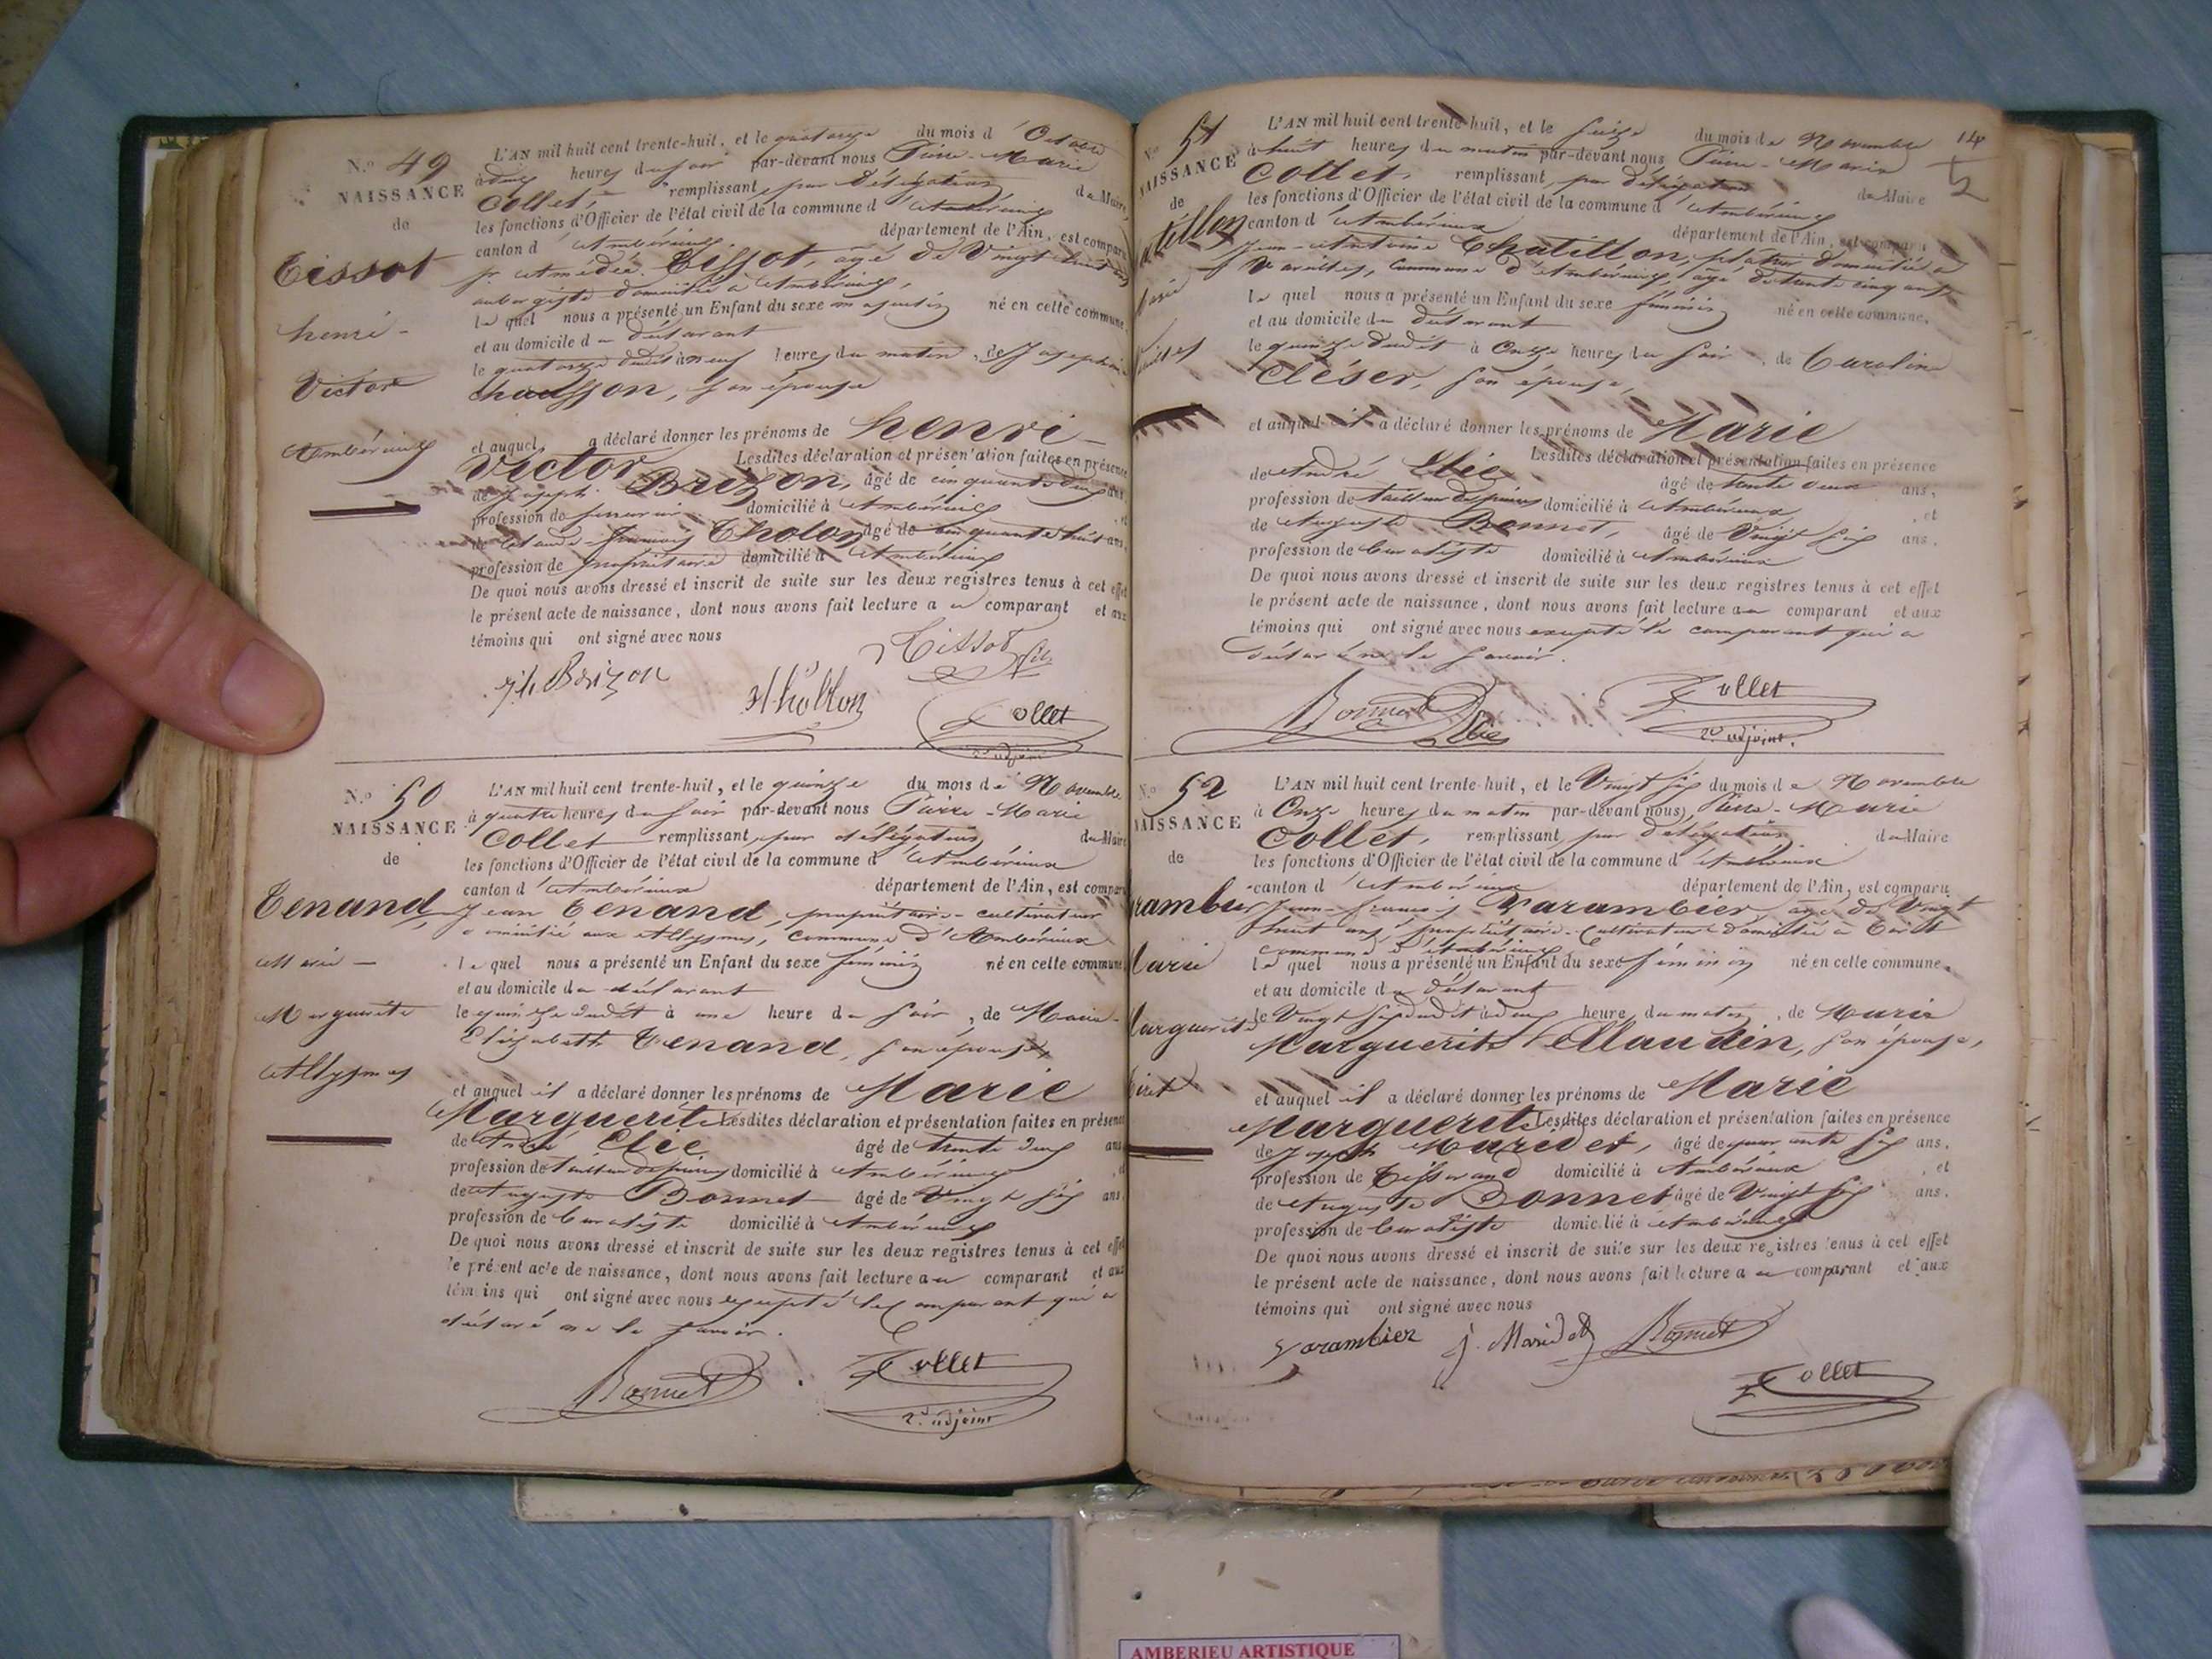 N.o 49
NAISSANCE
de
Tissot
henri -
Victor
Ambérieux
L'AN mil huit cent trente-huit, et le quatorze du mois d' Octobre
à deux heures du soir par-devant nous Pierre-Marie
Collet, remplissant, par délégation, du Maire,
les fonctions d'Officier de l'état civil de la commune d' Ambérieux
canton d' Ambérieux département de l'Ain, est comparu
Amédée Tissot, agé de Vingt huit ans
aubergiste domicilié à Ambérieux,
le quel nous a présenté un Enfant du sexe masculin né en cette commune,
et au domicile du déclarant
le quatorze dudit à neuf heures du matin, de Josephine
Chausson, son épouse
et auquel a déclaré donner les prénoms de henri-
Victor Lesdites déclaration et présentation faites en présence
de Joseph Brizon, âgé de cinquante deux ans
profession de domicilié à Ambérieux, et
de Claude-françois Tholon âgé de cinquante huit ans,
profession de propriétaire domicilié à Ambérieux
De quoi nous avons dressé et inscrit de suite sur les deux registres tenus à cet effet
le présent acte de naissance, dont nous avons fait lecture au comparant et aux
témoins qui ont signé avec nous
Tissot fils
Jh Brizon
Collet
2e adjoint
N.o 50
NAISSANCE
de
Tenand,
Marie -
Marguerite
Allysmes
L'AN mil huit cent trente-huit, et le quinze du mois de Novembre
à quatre heures du soir par-devant nous Pierre-Marie
Collet remplissant, par délégation du Maire
les fonctions d'Officier de l'état civil de la commune d' Ambérieux
canton d' Ambérieux département de l'Ain, est comparu
Jean Tenand, propriétaire-cultivateur
domicilié aux Allysmes, commune d'Ambérieux
le quel nous a présenté un Enfant du sexe féminin né en cette commune
et au domicile du déclarant
le quinze dudit à une heure du soir, de Marie-
Elizabeth Tenand, son épouse
et auquel il a déclaré donner les prénoms de Marie
Marguerite Lesdites déclaration et présentation faites en présence
de André Elie âgé de trente deux ans
profession de tailleur de pierres domicilié à Ambérieux, et
de Auguste Bonnet âgé de Vingt six ans
profession de Buraliste domicilié à Ambérieux
De quoi nous avons dressé et inscrit de suite sur les deux registres tenus à cet effet
le présent acte de naissance, dont nous avons fait lecture au comparant et aux
témoins qui ont signé avec nous excepté le comparant qui a
déclaré ne le savoir.
Bonnet
Collet
2e adjoint
14
51
NAISSANCE
de
L'AN mil huit cent trente-huit, et le seize du mois de Novembre
à huit heures du matin par-devant nous Pierre-Marie
Collet, remplissant, par délégation du Maire
les fonctions d'Officier de l'état civil de la commune d' Ambérieux
canton d' Ambérieux département de l'Ain, est comparu
Jean-Antoine Chatillon, domicilié à
Vareilles, commune d'Ambérieux, agé de trente cinq ans
le quel nous a présenté un Enfant du sexe féminin né en cette commune,
et au domicile du déclarant
le quinze dudit à Onze heures du soir, de Caroline
Cléser, son épouse,
et auquel il a déclaré donner les prénoms de Marie
Lesdites déclaration et présentation faites en présence
de André Elie âgé de trente deux ans,
profession de tailleur de pierres domicilié à Ambérieux, et
de Auguste Bonnet, âgé de Vingt six ans.
profession de Buraliste domicilié à Ambérieux
De quoi nous avons dressé et inscrit de suite sur les deux registres tenus à cet effet
le présent acte de naissance, dont nous avons fait lecture au comparant et aux
témoins qui ont signé avec nous excepté le comparant qui a
déclaré ne le savoir.
Bonnet Elie
Collet
2e adjoint.
N.o 52
NAISSANCE
de
L'AN mil huit cent trente-huit, et le Vingt six du mois de Novembre
à Onze heures du matin par-devant nous, Pierre-Marie
Collet, remplissant, par délégation du Maire
les fonctions d'Officier de l'état civil de la commune d' Ambérieux
canton d' Ambérieux département de l'Ain, est comparu
Jean-françois Varambier, agé de Vingt
huit ans, propriétaire-cultivateur domicilié à Tiret
commune d'Ambérieux
le quel nous a présenté un Enfant du sexe féminin né en cette commune,
et au domicile du déclarant
le Vingt six dudit à deux heures du matin, de Marie
Marguerite Vellaudin, son épouse,
et auquel il a déclaré donner les prénoms de Marie
Marguerite Lesdites déclaration et présentation faites en présence
de Joseph Maridet, âgé de quarante six ans.
profession de Tisserand domicilié à Ambérieux, et
de Auguste Bonnet âgé de Vingt six ans.
profession de Buraliste domicilié à Ambérieux
De quoi nous avons dressé et inscrit de suite sur les deux registres tenus à cet effet
le présent acte de naissance, dont nous avons fait lecture au comparant et aux
témoins qui ont signé avec nous
Varambier j. Maridet Bonnet
Collet
AMBERIEU ARTISTIQUE